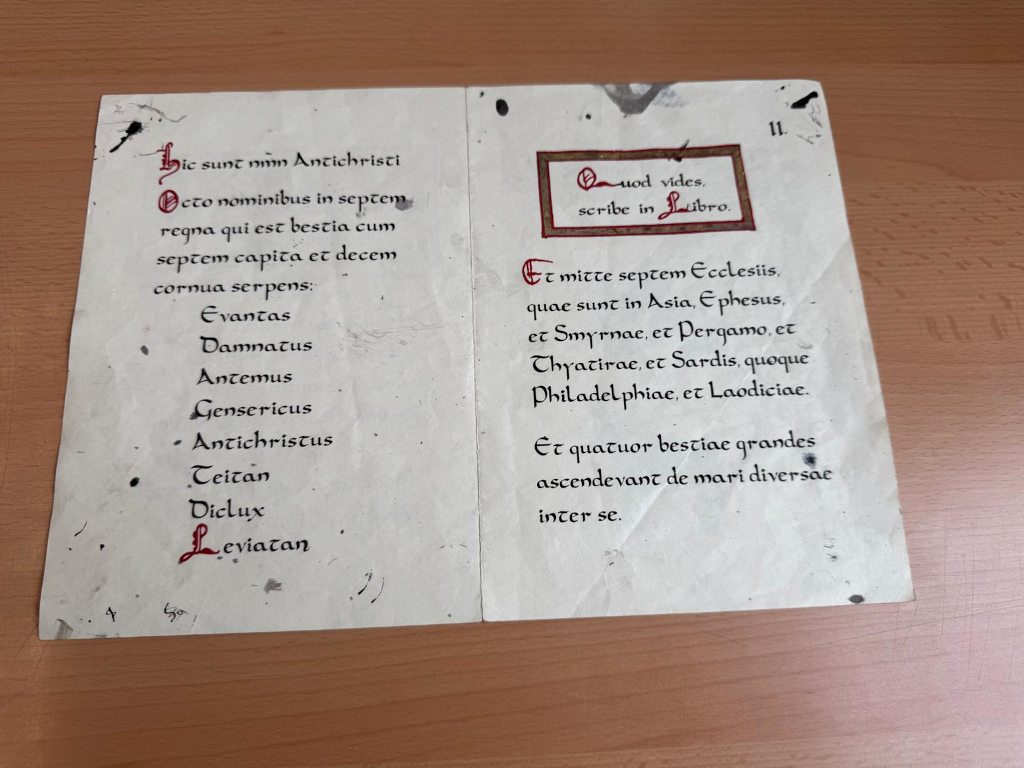 Hic sunt nm̄n Antichristi
Octo nominibus in septem
regna qui est bestia cum
septem capita et decem
cornua serpens:
Evantas
Damnatus
Antemus
Gensericus
Antichristus
Teitan
Diclux
Leviatan
II.
Quod vides,
scribe in Libro.
Et mitte septem Ecclesiis,
quae sunt in Asia, Ephesus,
et Smyrnae, et Pergamo, et
Thyatirae, et Sardis, quoque
Philadelphiae, et Laodiciae.
Et quatuor bestiae grandes
ascendevant de mari diversae
inter se.